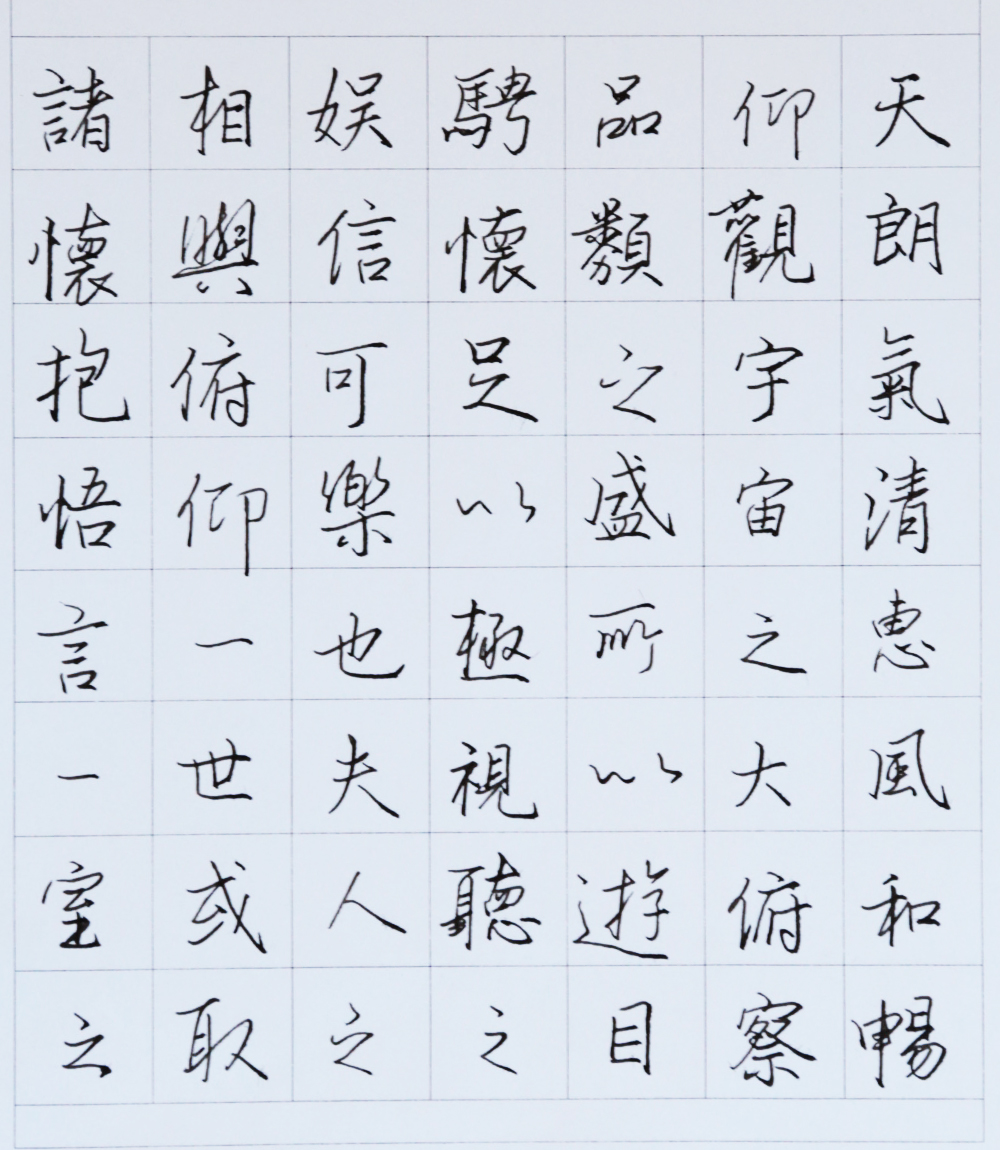 天朗氣清惠風和暢
仰觀宇宙之大俯察
品類之盛所以遊目
騁懷足以極視聽之
娱信可樂也夫人之
相與俯仰一世或取
諸懷抱悟言一室之